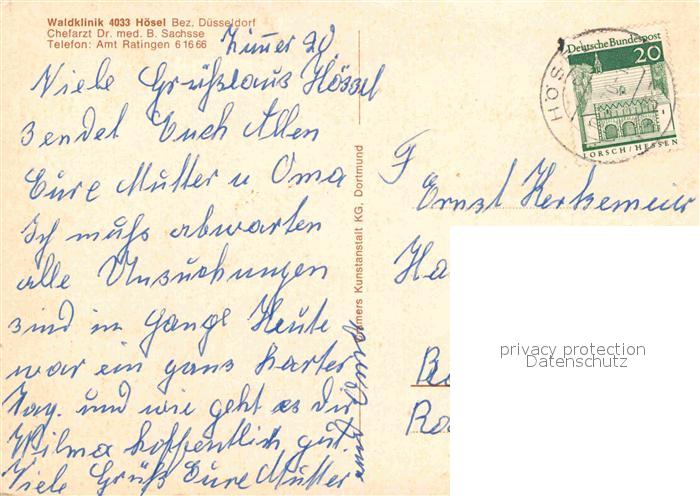 Waldklinik 4033 Hösel Bez. Düsseldorf
Chefarzt Dr. med. B. Sachsse
Telefon: Amt Ratingen 6 16 66
Zimmer 20.
Viele Grüße aus Hössel
sendet Euch Allen
Eure Mutter u Oma
Ich muß abwarten
alle Unsuchungen
sind in Gange Heute
war ein ganz harter
Tag. und wie geht es dir
Wilma hoffentlich gut.
Viele Grüß Eure Mutter
und Oma
Cramers Kunstanstalt KG, Dortmund
HÖS
Deutsche Bundespost
20
LORSCH/HESSEN
F
Ernst
Ha
privacy protection
Datenschutz